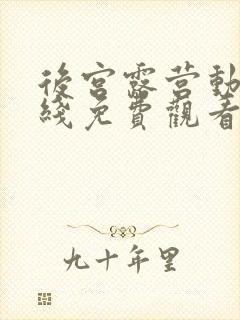 後宮露营動
綫免費觀看
九十年里